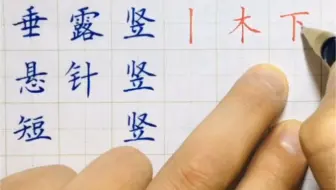 垂露竖 丨木下
悬针竖
短 竖